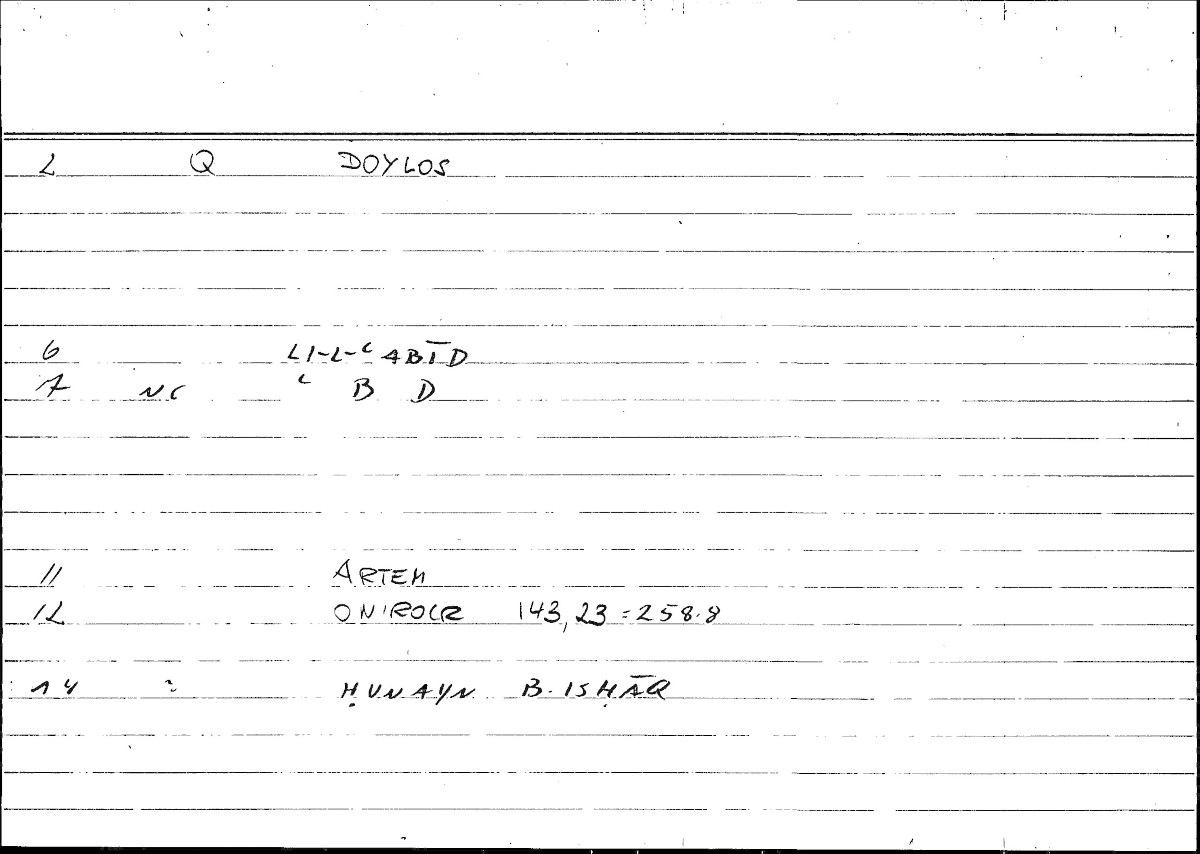 2 Q DOYLOS
6 LI-L-ʿABĪD
7 NC ʿ B D
11 ARTEM
12 ONIROCR 143,23=258.8
14 ḤUNAYN B. ISḤĀQ